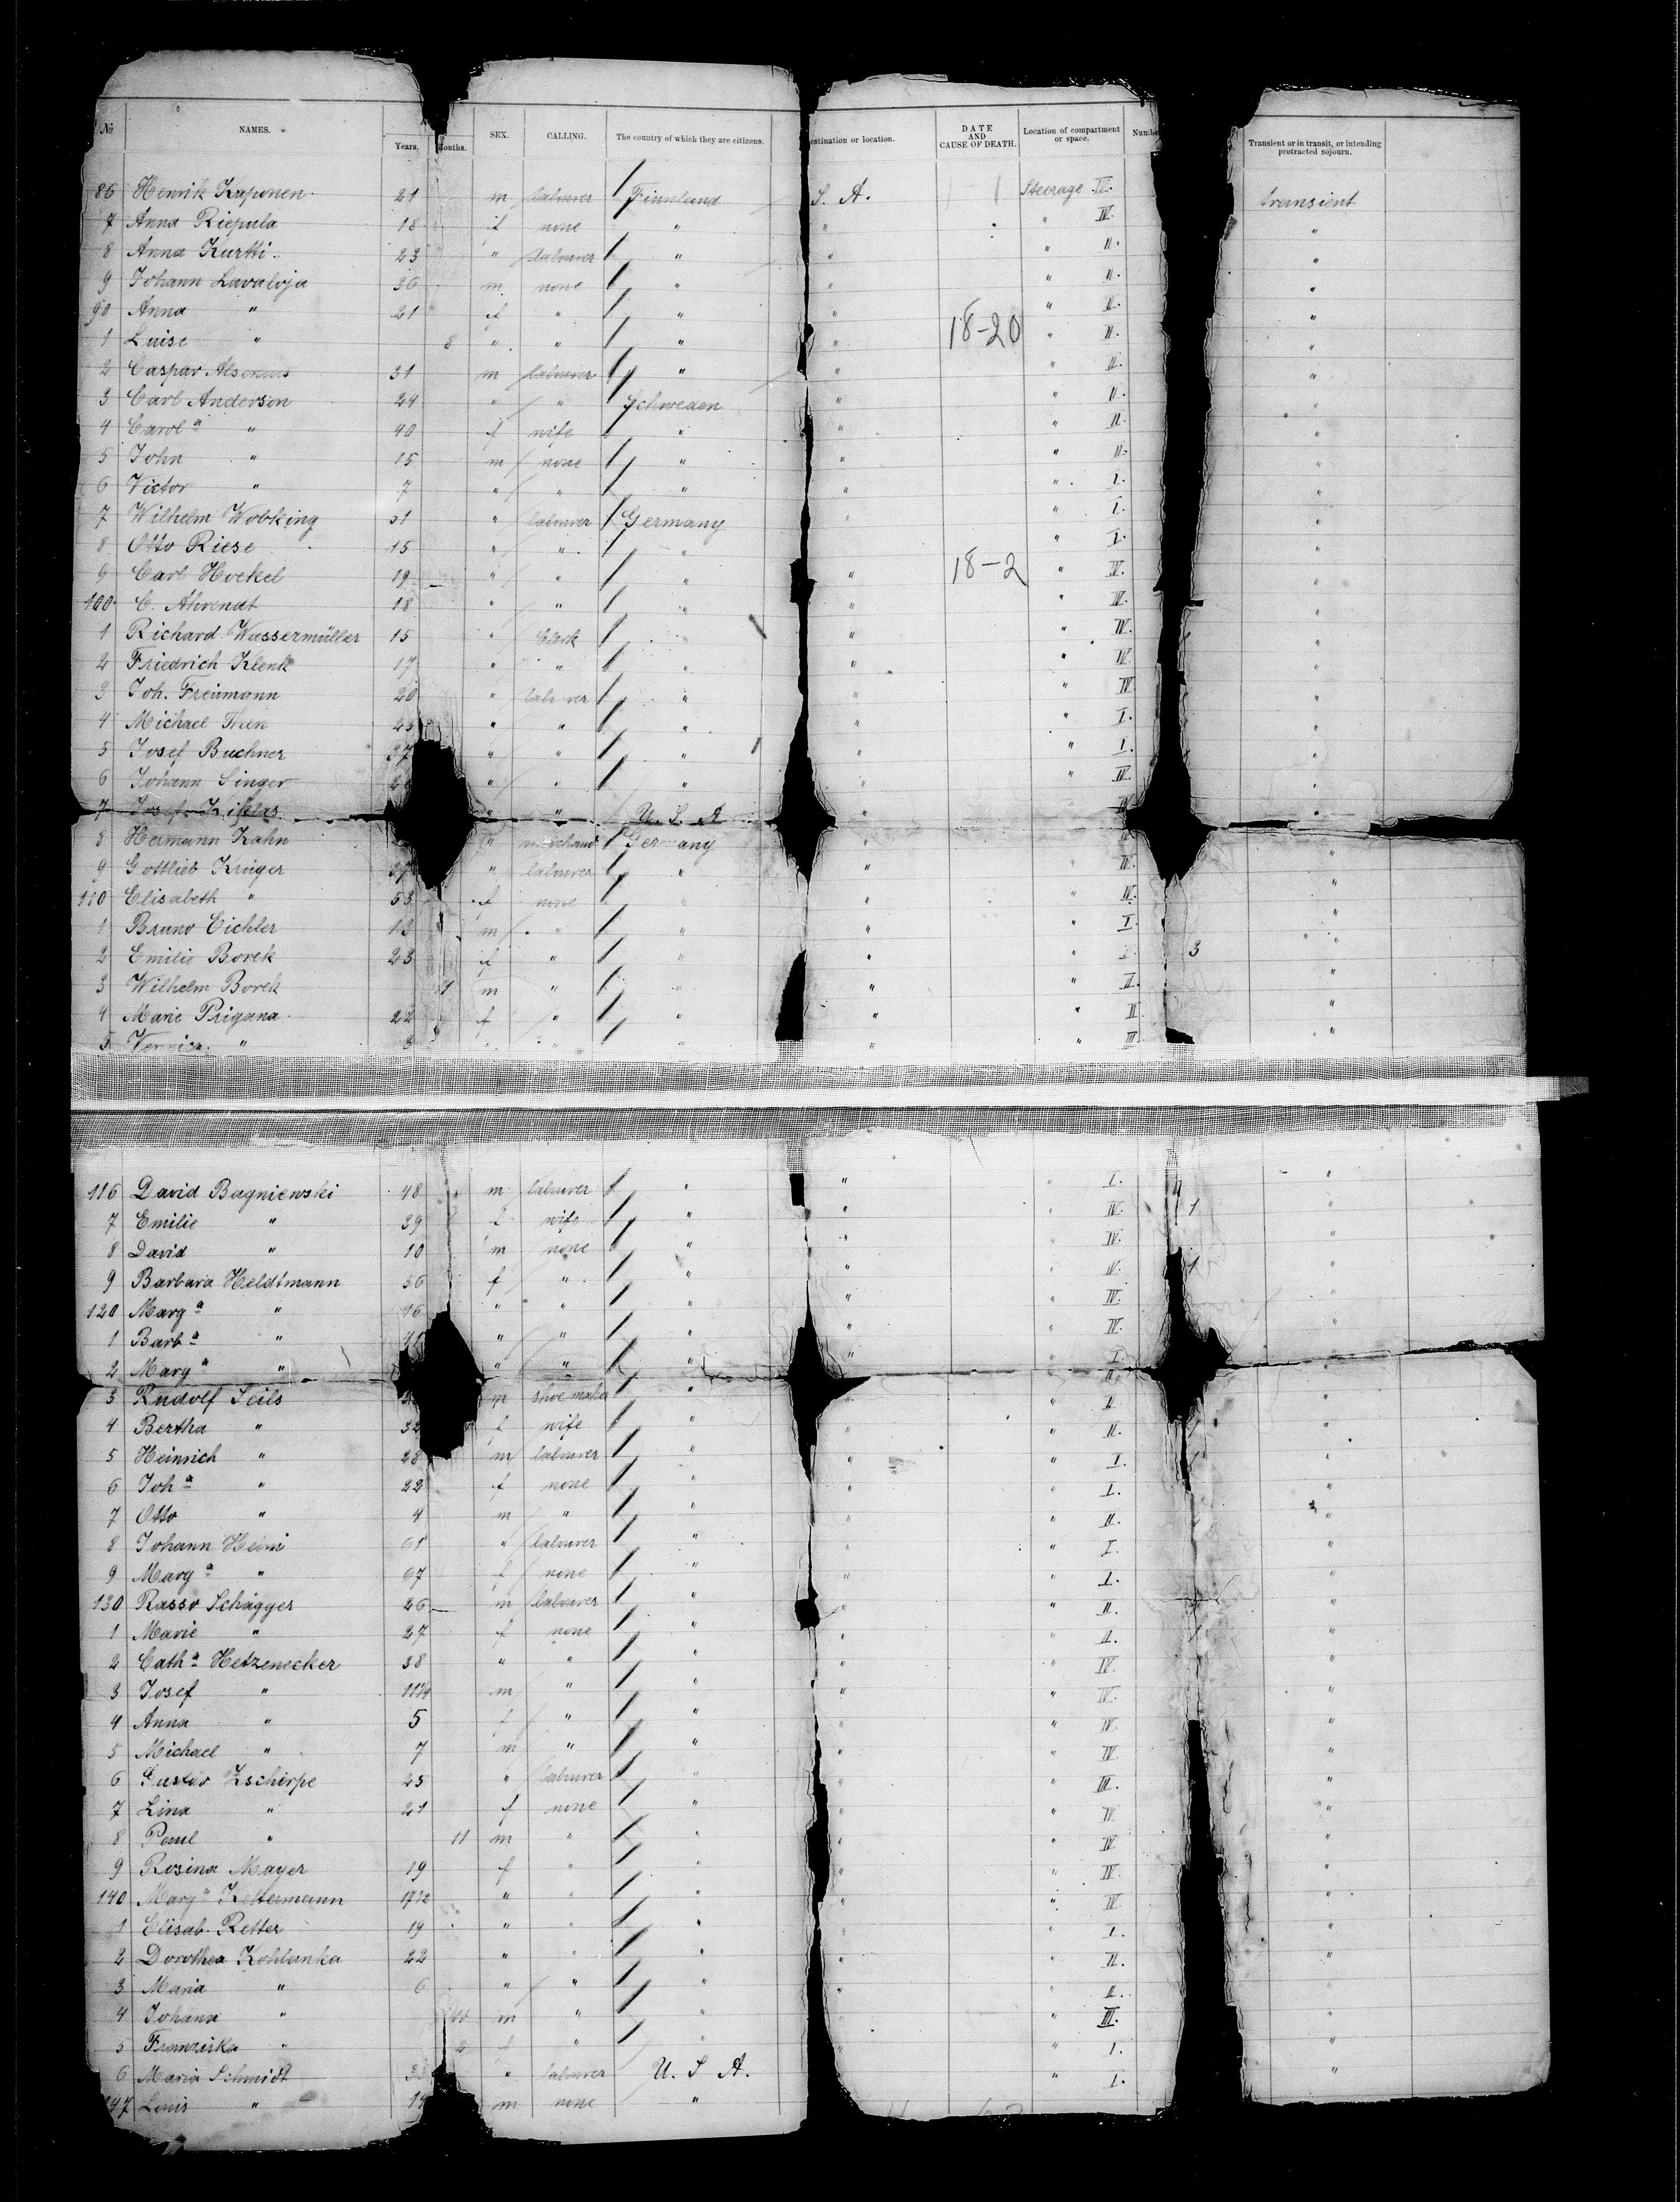 № NAMES. Years. Months. SEX. CALLING. The country of which they are citizens. estination or location. DATE AND CAUSE OF DEATH. Location of compartment or space. Numbe Transient or in transit, or intending protracted sojourn.
86 Henrik Kaponen 21 m labourer Finnland S. A. Steerage IV. transient
7 Anna Riepula 18 f none " " " IV. "
8 Anna Kurtti 23 " labourer " " " II. "
9 Johann Lavaloja 36 m none " " " II. "
90 Anna " 21 f " " " " II. "
1 Luise " 8 " " " " 18-20 " II. "
2 Caspar 31 m labourer " " " II. "
3 Carl Anderson 24 " " Schweden " " II. "
4 Carolª " 40 f wife " " " II. "
5 John " 15 m none " " " II. "
6 Victor " 7 " " " " " I. "
7 Wilhelm Wobking 51 " labourer Germany " " I. "
8 Otto Riese 15 " " " " I. "
9 Carl Hockel 19 " " " " 18-2 " IV. "
100 C. Ahrendt 18 " " " " " IV. "
1 Richard Wassermüller 15 " Clerk " " " IV. "
2 Friedrich Klenk 17 " " " " " IV. "
3 Joh. Freimann 20 " labourer " " " IV "
4 Michael Then 23 " " " " " I. "
5 Josef Buchner 37 " " " " " I. "
6 Johann Singer " " " " " IV. "
7 Josef " " U. S. A " "
8 Hermann Kahn " merchant Germany " "
9 Gottlieb Krüger 37 " labourer " " " IV. "
110 Elisabeth " 53 f none " " " IV. "
1 Bruno Eichler 13 m " " " I. "
2 Emilie Borek 23 f " " " 3 "
3 Wilhelm Borek 1 m " " " " II. "
4 Marie Prigana 22 f " " " " II "
5 " " " " " III "
116 David Bagniewski 48 m labourer " " " I. "
7 Emilie " 39 f wife " " " IV. 1 "
8 David " 10 m none " " " IV. "
9 Barbara Heldtmann 56 f " " " " IV. 1 "
120 Margª " 16 " " " " " IV. "
1 Barbª " " " " " " IV. "
2 Margª " " " " " " I. "
3 Rudolf Seils m shoe maker " " II. "
4 Bertha " 32 f wife " " " II. "
5 Heinrich " 28 m labourer " " " I. "
6 Johª " 22 f none " " " I. "
7 Otto " 4 m " " " " II. "
8 Johann Heini 61 " labourer " " " I. "
9 Margª " 67 f none " " " I. "
130 Rasso Schägger 26 m labourer " " " II. "
1 Marie " 27 f none " " " II. "
2 Cathª Hetzenecker 38 " " " " " IV. "
3 Josef " m " " " " IV. "
4 Anna " 5 f " " " " IV. "
5 Michael " 7 m " " " " IV. "
6 Gustav Zschirpe 23 " labourer " " " III. "
7 Lina " 21 f none " " " IV. "
8 Paul " 11 m " " " " IV. "
9 Rosina Mayer 19 f " " " " IV. "
140 Margª Kellermann " " " " " IV. "
1 Elisab. Retter 19 " " " " " I. "
2 Dorothea Kohlanka 22 " " " " " II. "
3 Maria " 6 " " " " " II. "
4 Johann " m " " " III. "
5 Franziska " 2 f " " " I. "
6 Maria Schmidt " labourer U. S A. " I. "
147 Louis " m none "